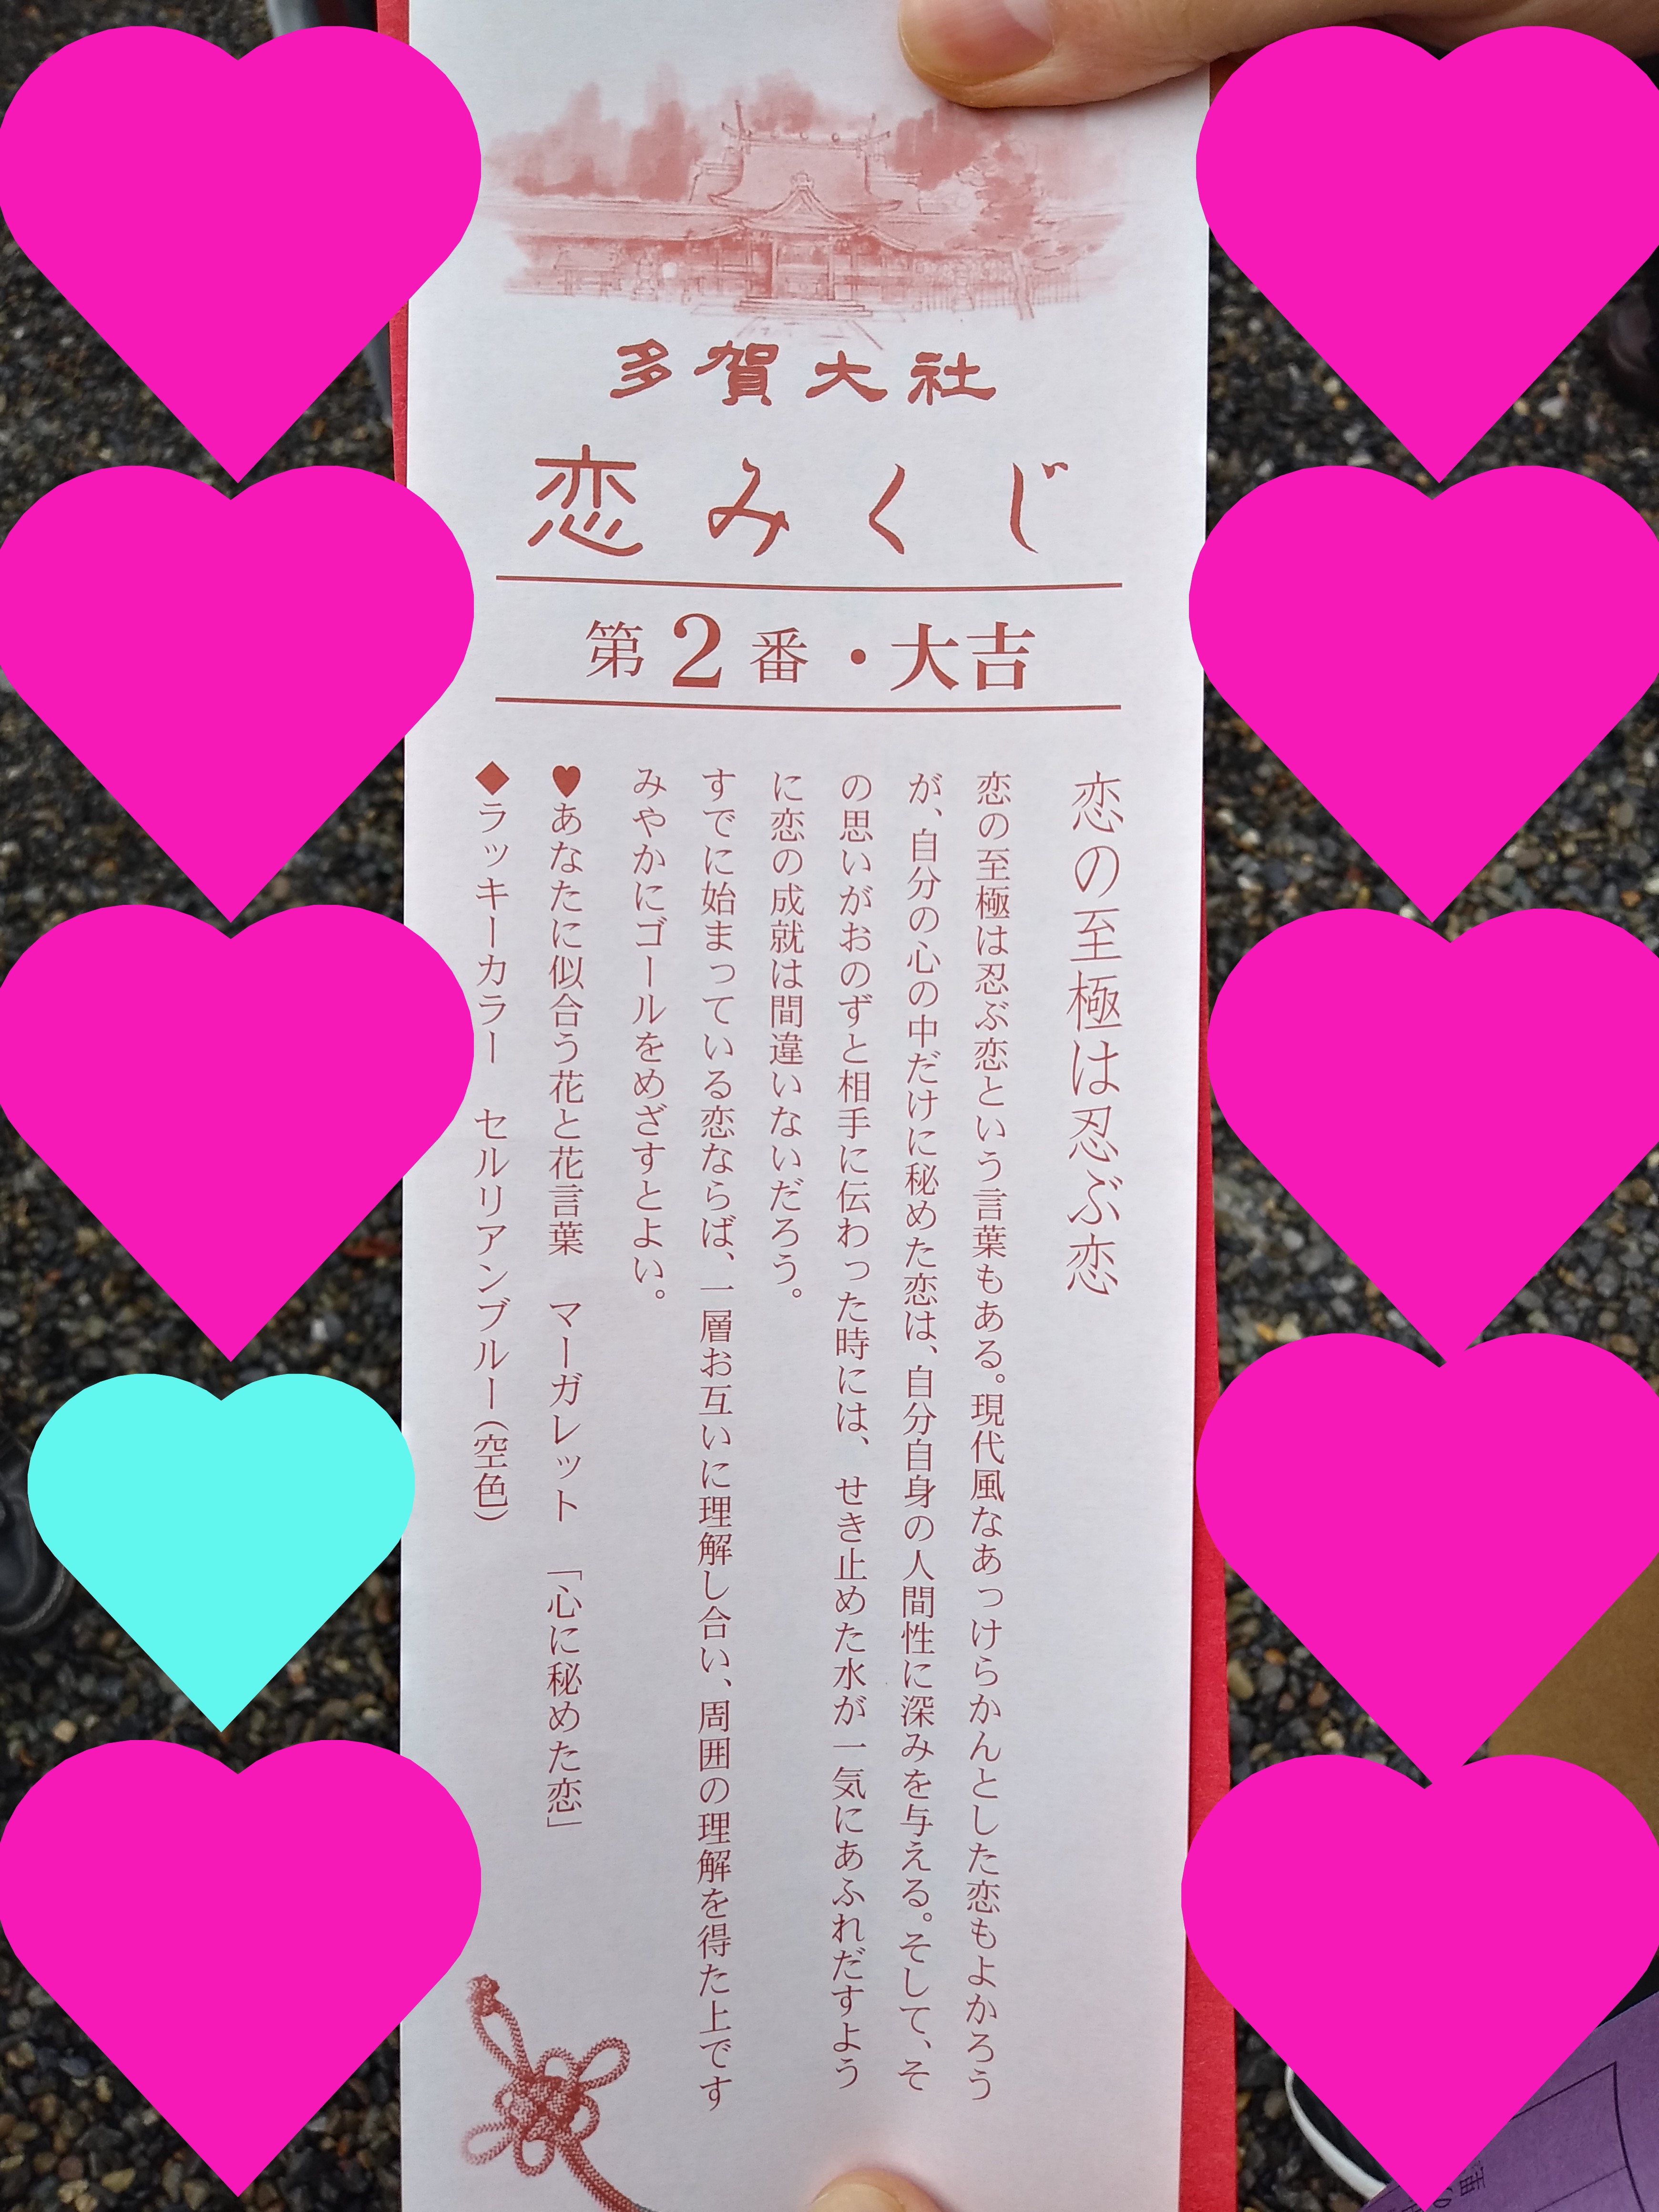 多賀大社
恋みくじ
第2番・大吉
恋の至極は忍ぶ恋
恋の至極は忍ぶ恋という言葉もある。現代風なあっけらかんとした恋もよかろう
が、自分の心の中だけに秘めた恋は、自分自身の人間性に深みを与える。そして、そ
の思いがおのずと相手に伝わった時には、せき止めた水が一気にあふれだすよう
に恋の成就は間違いないだろう。
すでに始まっている恋ならば、一層お互いに理解し合い、周囲の理解を得た上です
みやかにゴールをめざすとよい。
♥あなたに似合う花と花言葉　マーガレット　「心に秘めた恋」
◆ラッキーカラー　セルリアンブルー（空色）